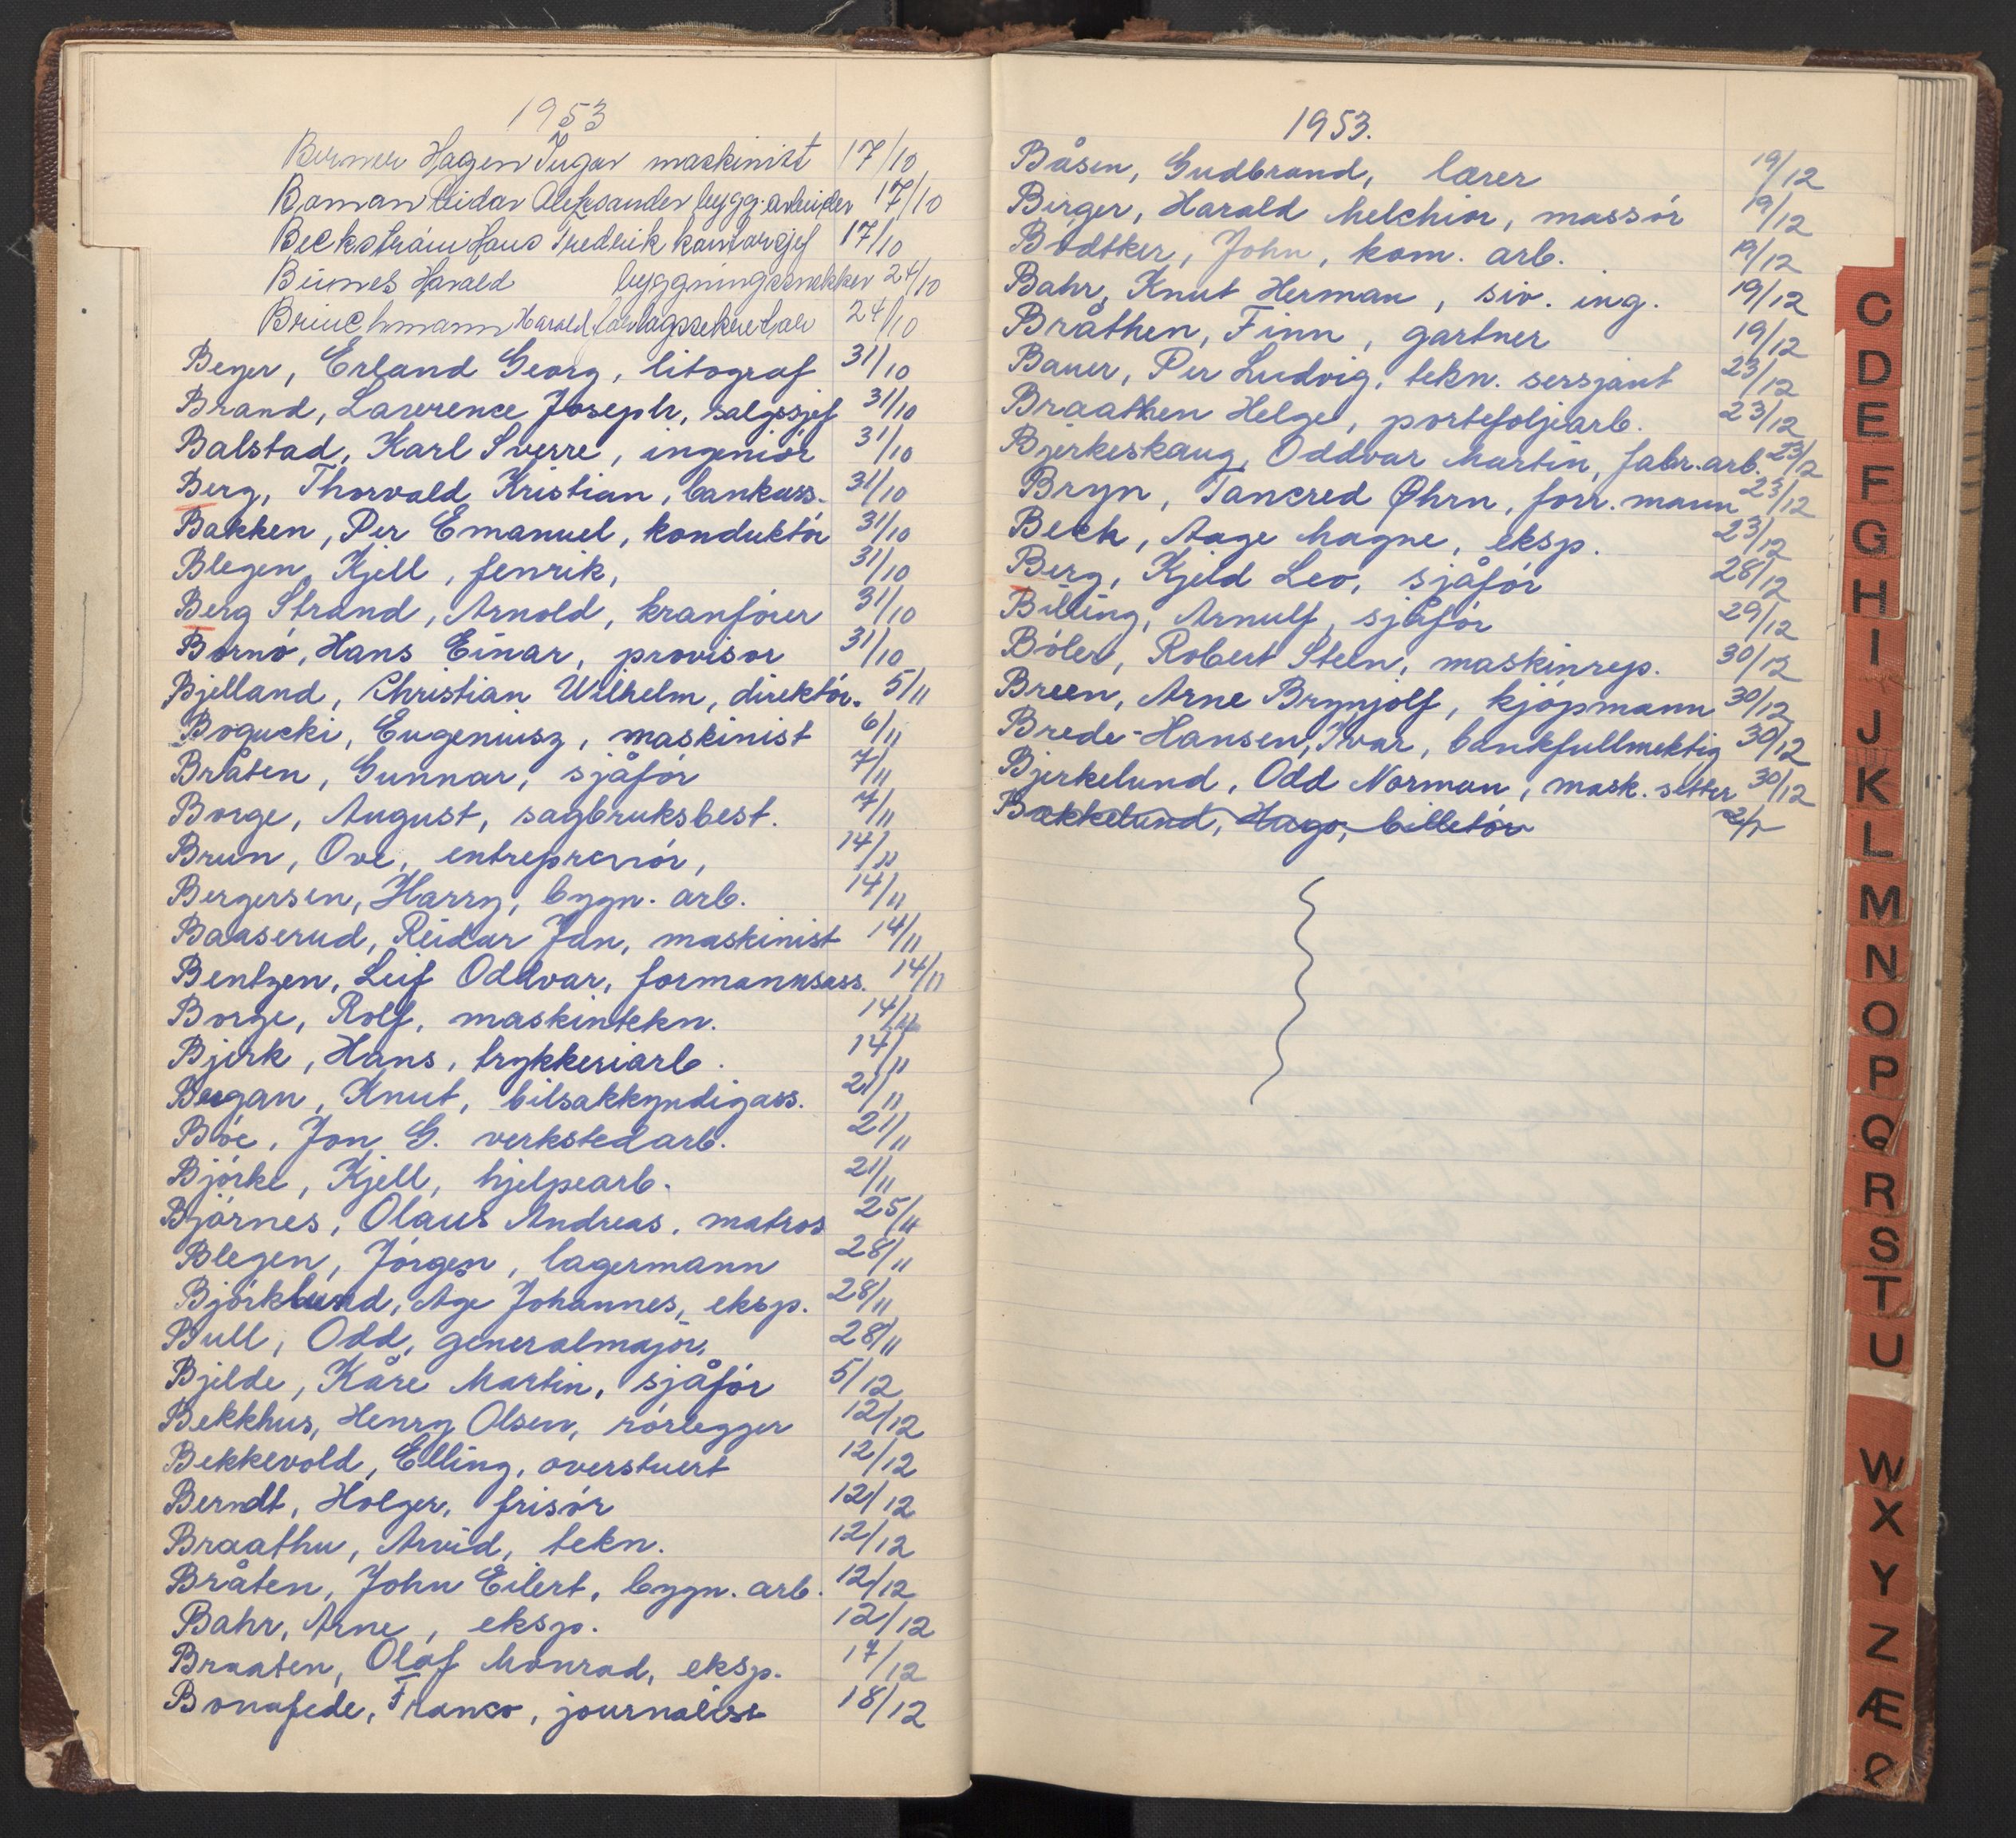 1953
Berner Hagen Ingar maskinist 17/10
Boman Reidar Aleksander bygg.arbeider 17/10
Beckstrøm Hans Fredrik kontorsjef 17/10
Buines Harald byggningssnekker 24/10
Brinchmann Harald forlagssekretær 24/10
Beyer, Erland Georg, litograf 31/10
Brand, Lawrence Joseph, salgssjef 31/10
Balstad, Karl Sverre, ingeniór 31/10
Berg, Thorvald Kristian, bankass. 31/10
Bakken, Per Emanuel, konduktór 31/10
Blegen, Kjell, fenrik, 31/10
Berg Strand, Arnold, kranfórer 31/10
Bornó, Hans Einar, provisor 31/10
Bjelland, Christian Wilhelm, direktór. 5/11
Bogucki, Eugeniusz, maskinist 6/11
Bråten, Gunnar, sjåfór 7/11
Borge, August, sagbruksbest. 7/11
Brun, Ove, entreprenór, 14/11
Bergersen, Harry, bygn. arb. 14/11
Baaserud, Reidar Jan, maskinist 14/11
Bentzen, Leif Oddvar, formannsass. 14/11
Borge, Rolf, maskintekn. 14/11
Bjerk, Hans, trykkeriarb. 14/11
Bergan, Knut, bilsakkyndigass. 21/11
Bóe, Jon G. verkstedarb. 21/11
Bjórke, Kjell, hjelpearb. 21/11
Bjórnes, Olaus Andreas, matros 25/11
Blegen, Jórgen, lagermann 28/11
Bjórklund, Age Johannes, eksp. 28/11
Bull, Odd, generalmajor, 28/11
Bjelde, Kåre Martin, sjåfór 5/12
Bekkhus, Henry Olsen, rórlegger 12/12
Bekkevold, Elling, overstuert 12/12
Berndt, Holger, frisór 12/12
Braathu, Arvid, tekn. 12/12
Bråten, John Eilert, bygn. arb. 12/12
Bahr, Arne, eksp. 12/12
Braaten, Olaf Monrad, eksp. 17/12
Bonafede, Franco, journalist 18/12
1953.
Båsen, Gudbrand, lærer 19/12
Birger, Harald Melchior, massór 19/12
Bodtker, John, kom. arb. 19/12
Bahr, Knut Herman, siv. ing. 19/12
Bråthen, Finn, gartner 19/12
Bauer, Per Ludvig, tekn. sersjant 23/12
Braathen Helge, portefoljearb. 23/12
Bjerkeskaug, Oddvar Martin, fabr.arb. 23/12
Bryn, Tancred Øhrn, forr. mann 23/12
Bech, Aage Magne, eksp. 23/12
Berg, Kjeld Leo, sjåfór 28/12
Billing, Arnulf, sjåfór 29/12
Bóler, Robert Steen, maskinrep. 30/12
Breen, Arne Brynjolf, kjópmann 30/12
Brede-Hansen, Ivar, bankfullmektig 30/12
Bjerkelund, Odd Norman, mask. setter 30/12
Bækkelund, Hago, billetór
C
D
E
F
G
H
I
J
K
L
M
N
O
P
Q
R
S
T
U
W
X
Y
Z
Æ